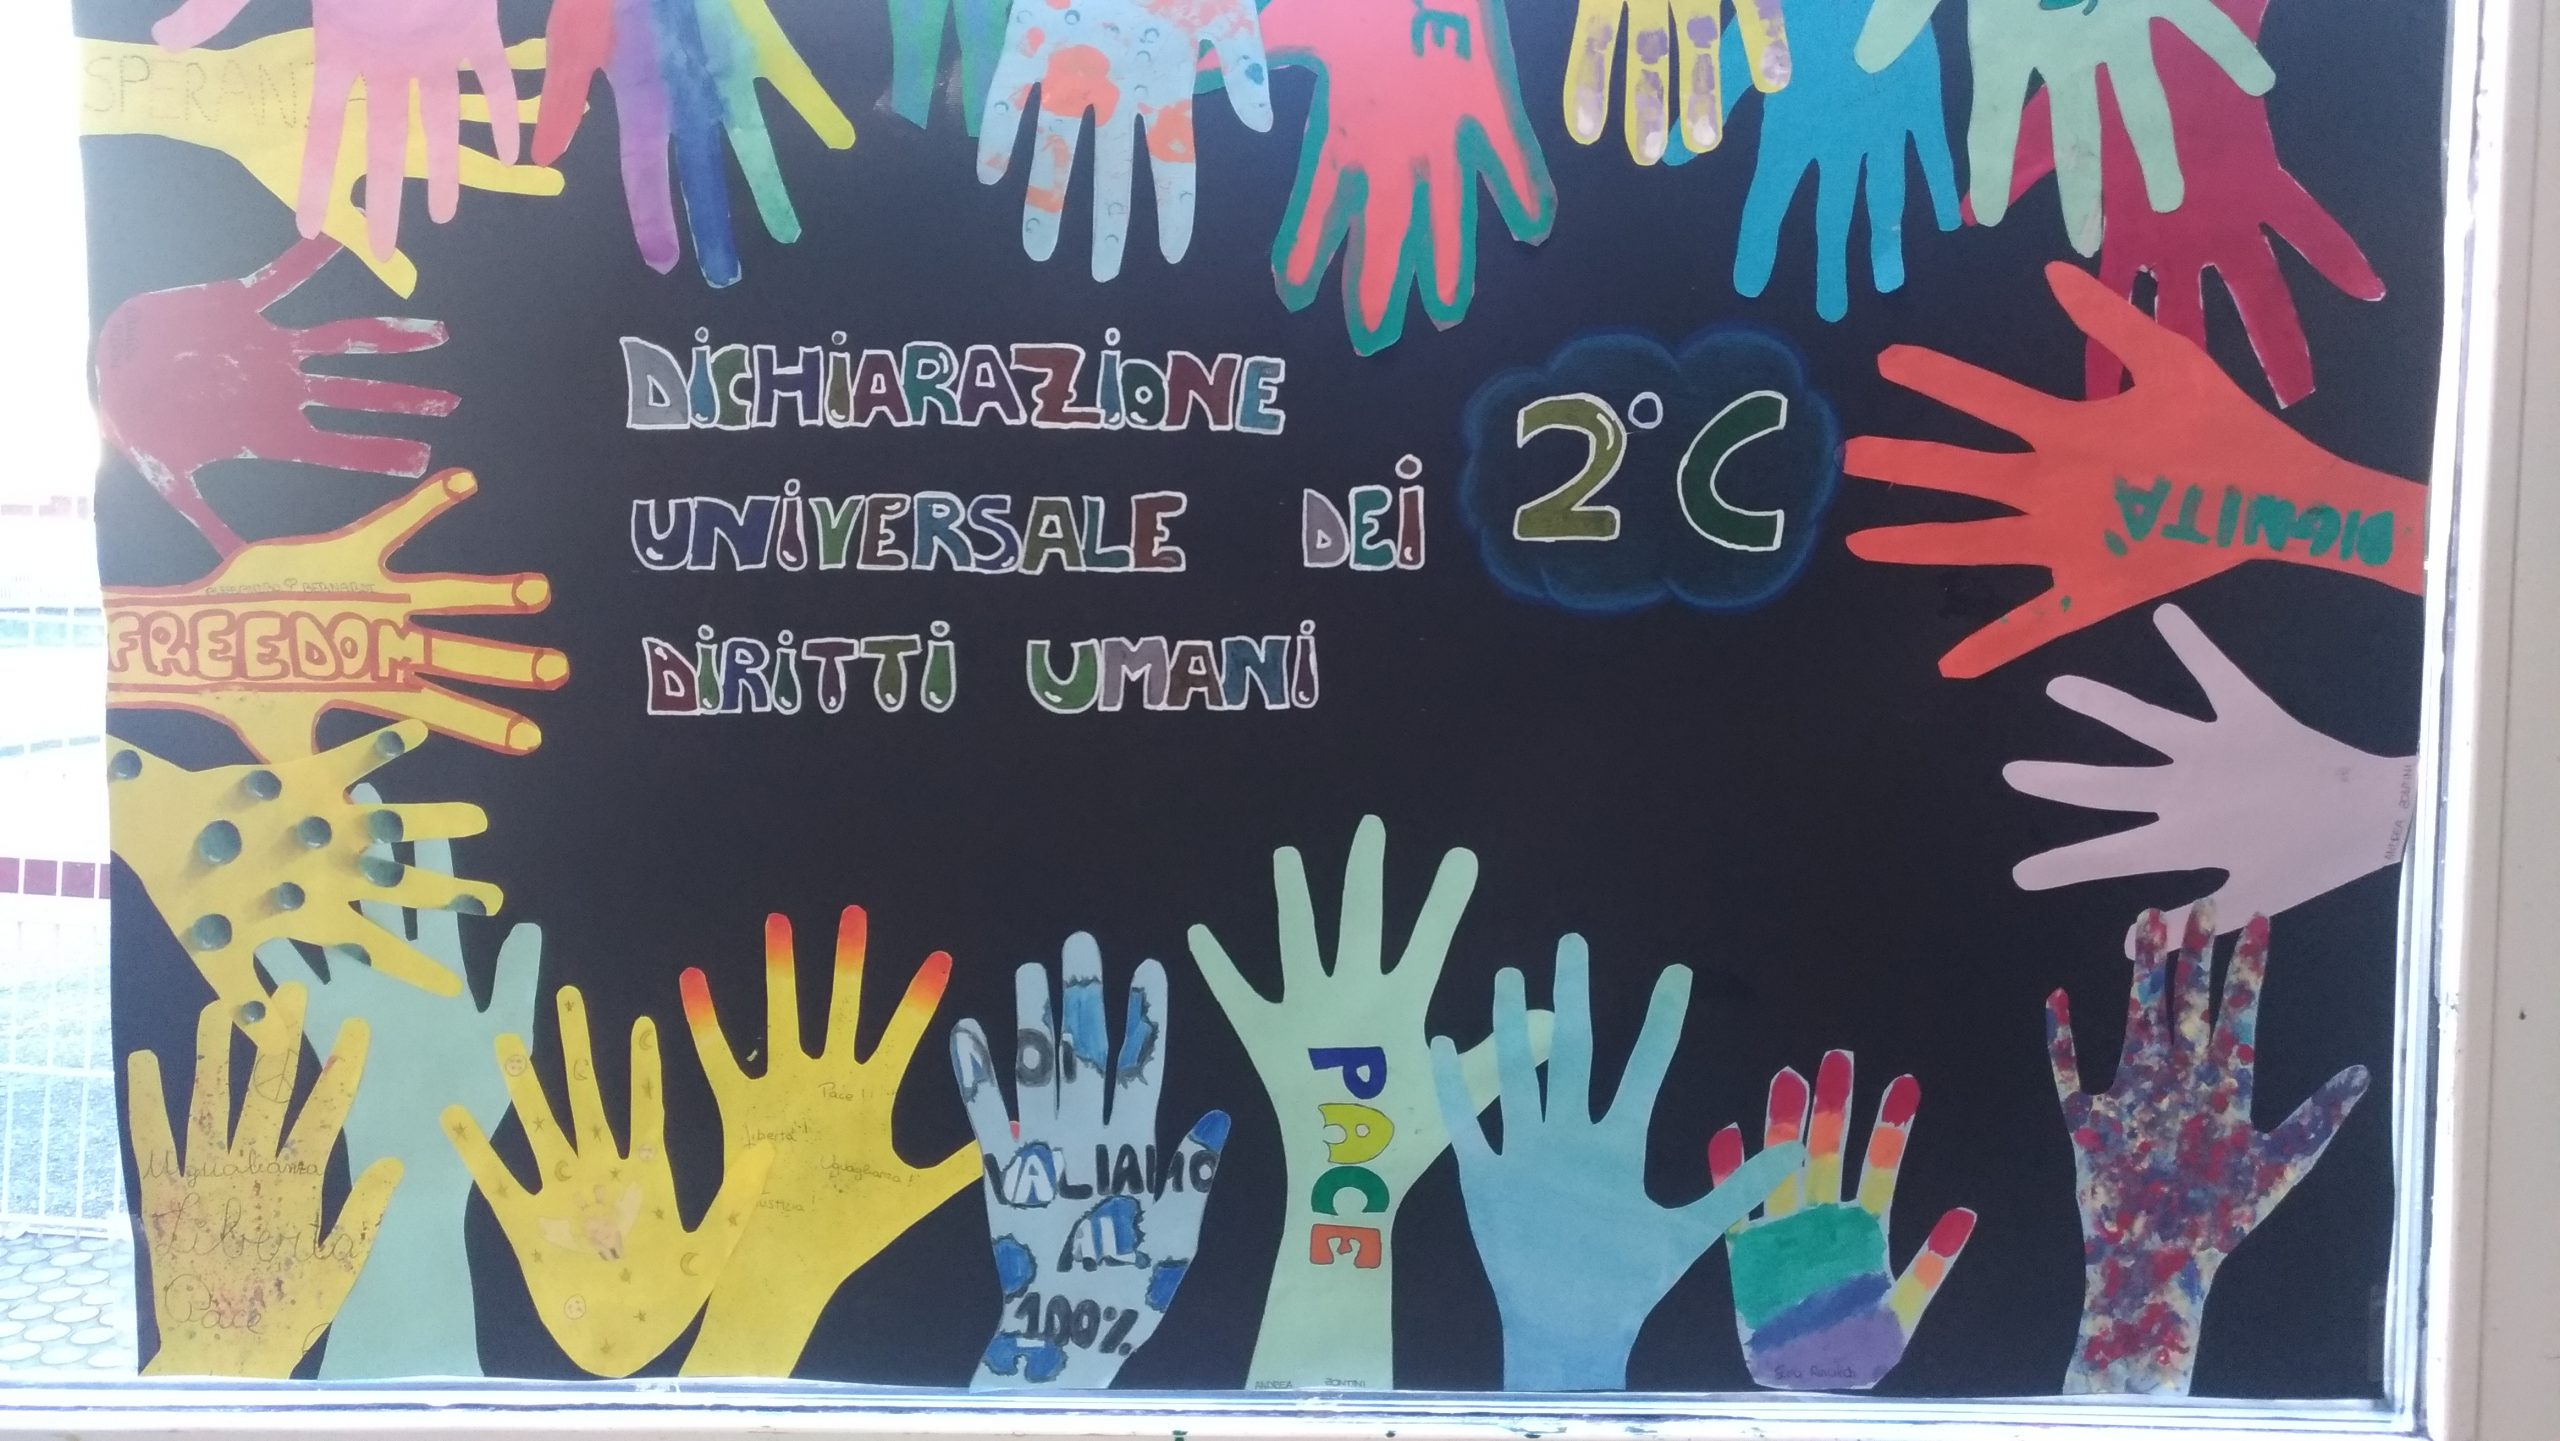 SPERANZ
LE
DICHIARAZIONE
UNIVERSALE DEI
DIRITTI UMANI
2°C
DIGNITÀ
FREEDOM
ANDREA ZONTINI
Pace!!
Libertà!!
Uguaglianza!
Uguaglianza
Libertà
Pace
NOI
VALIAMO
AL
100%
PACE
ANDREA ZONTINI